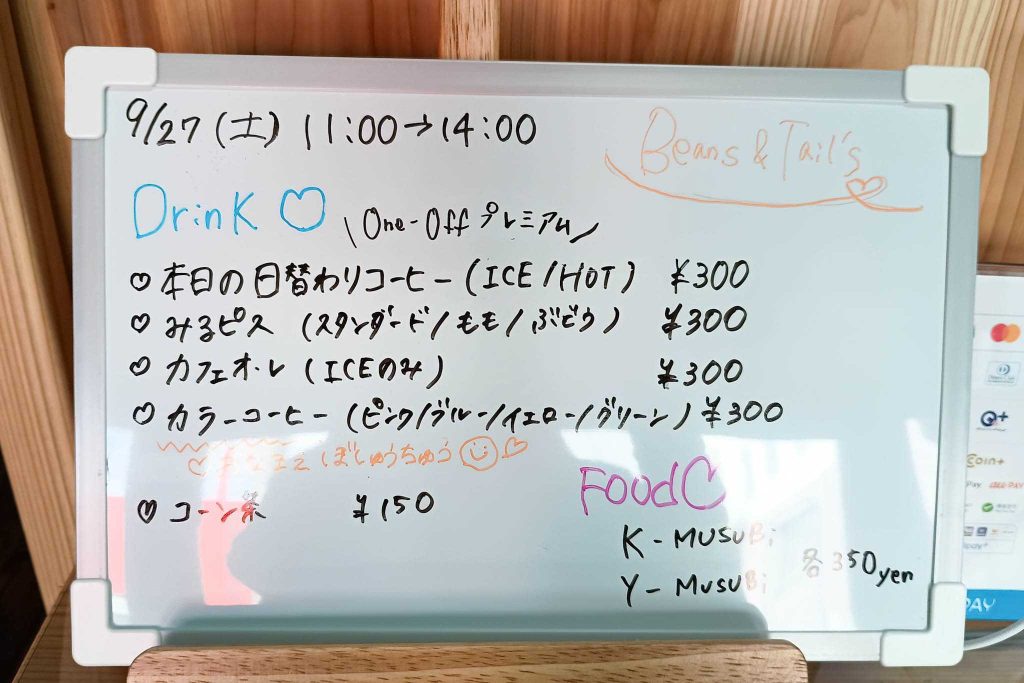 9/27 (土) 11:00→14:00
Beans & Tail's
Drink ♡
\ One-Off プレミアム /
♡ 本日の日替わりコーヒー (ICE/HOT) ¥300
♡ みるピス (スタンダード/もも/ぶどう) ¥300
♡ カフェオ・レ (ICEのみ) ¥300
♡ カラーコーヒー (ピンク/ブルー/イエロー/グリーン) ¥300
♡ ぼしゅうちゅう ☺ ♡
♡ コーン茶 ¥150
Food ♡
K-MUSUBi
Y-MUSUBi
各350yen
Q+
Coin+
Pay
PAY